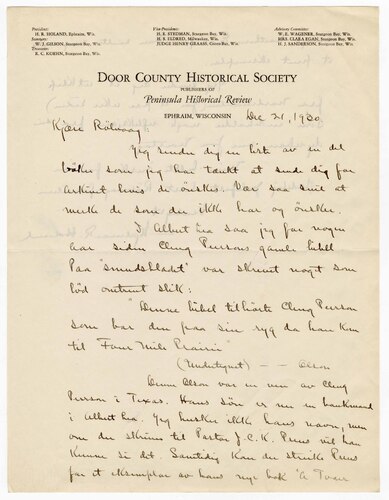 President:
H. R. HOLAND, Ephraim, Wis.
Secretary:
W. J. GILSON, Sturgeon Bay, Wis.
Treasurer:
R. C. KOEHN, Sturgeon Bay, Wis.
Vice-Presidents:
H. E. STEDMAN, Sturgeon Bay, Wis.
H. S. ELDRED, Milwaukee, Wis.
JUDGE HENRY GRAASS, Green Bay, Wis.
Advisory Committee:
W. E. WAGENER, Sturgeon Bay, Wis.
MRS. CLARA EGAN, Sturgeon Bay, Wis.
H. J. SANDERSON, Sturgeon Bay, Wis.
DOOR COUNTY HISTORICAL SOCIETY
PUBLISHERS OF
Peninsula Historical Review
EPHRAIM, WISCONSIN
Dec 21, 1930
Kjære Rölvaag:
Jeg sender dig en liste av en del
bøker som jeg har tænkt at sende dig for
Arkivet hvis de ønskes. Vær saa snil at
merke de som du ikke har og ønsker.
I Albert Lea saa jeg for nogen
aar siden Cleng Peersons gamle bibel
Paa "smudsbladet" var skrevet noget som
lød omtrent slik:
"Denne bibel tilhörte Cleng Peerson
som bar den paa sin ryg da han kom
til Four Mile Prairie"
(Undertegnet) — — Olson
Denne Olson var en ven av Cleng
Peerson i Texas. Hans sön er nu en bankmand
i Albert Lea. Jeg husker ikke hans navn, men
om du skriver til Pastor J.C.K. Preus vil han
kunne si det. Samtidig kan du Preus
for et eksemplar av hans nye bok "A Tour